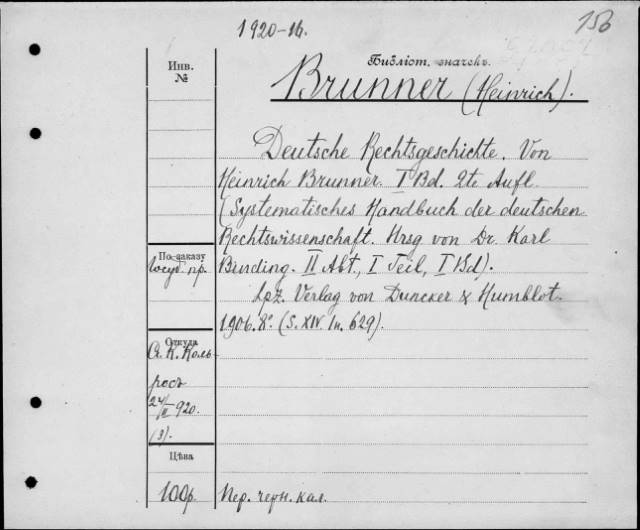 1920-16.
156
Инв.
№
Библіот. значекъ.
Brunner (Heinrich).
Deutsche Rechtsgeschichte. Von
Heinrich Brunner. I Bd. 2te Aufl.
(Systematisches Handbuch der deutschen
Rechtswissenschaft. Hrsg von Dr. Karl
Binding. II Abt., I Teil, I Bd).
Lpz. Verlag von Duncker & Humblot.
1906. 8° (S. XIV. In. 629).
По заказу
пр.
Откуда
К. Коль-
росъ
24/II 920.
(3).
Цѣна
100р.
Пер. черн. кал.